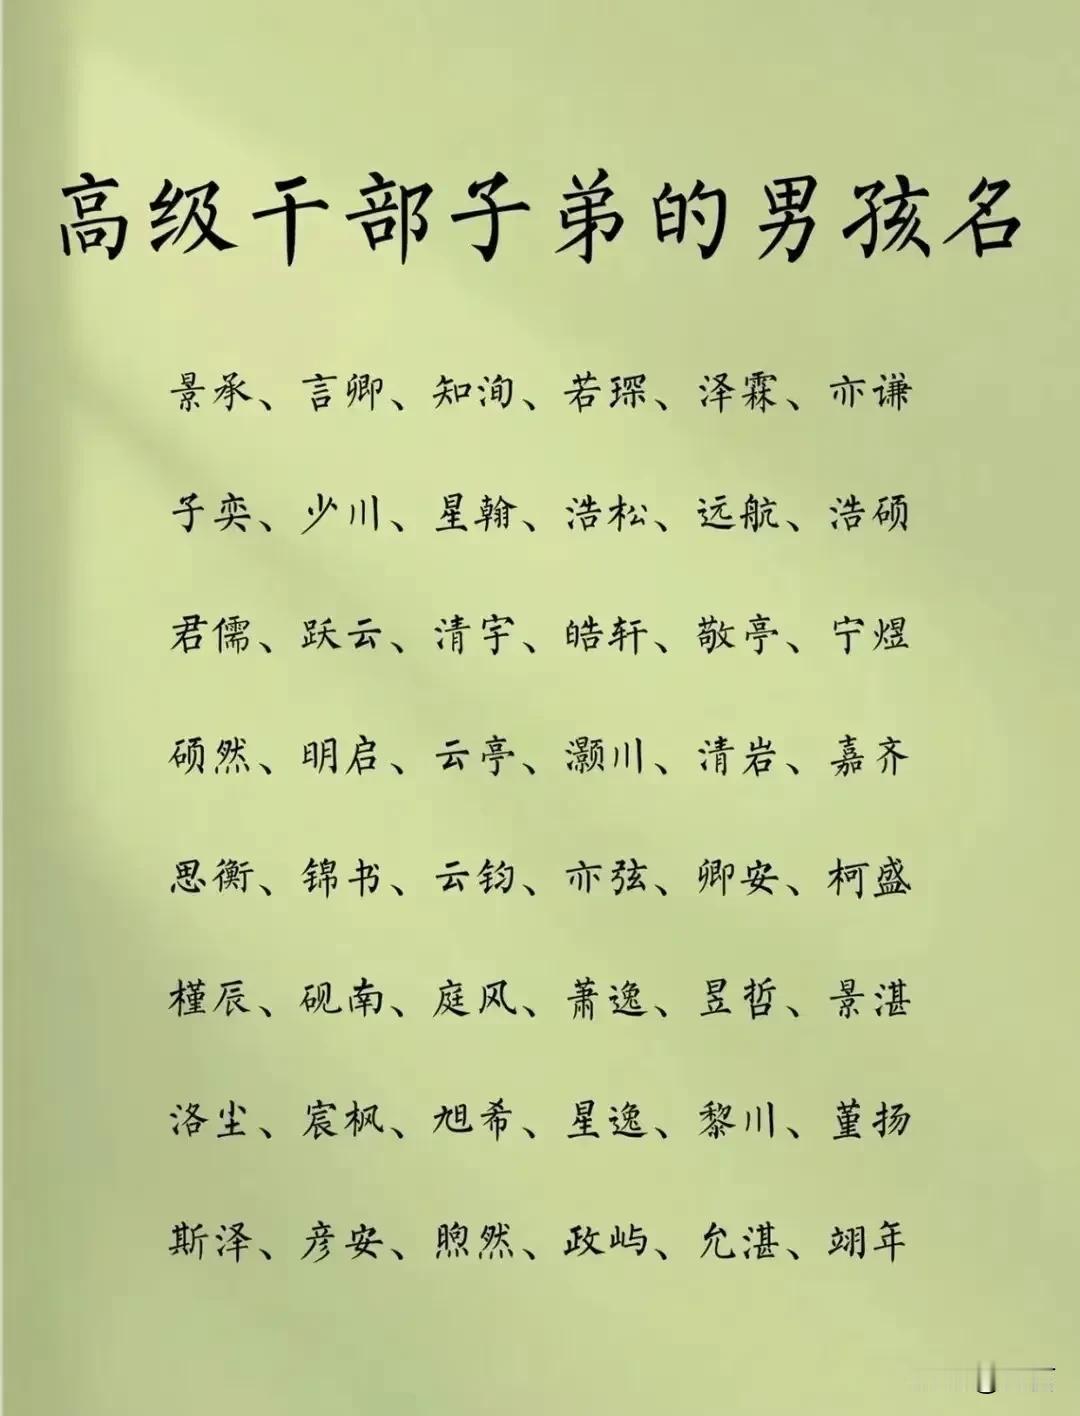 高级干部子弟的男孩名
景承、言卿、知洵、若琛、泽霖、亦谦
子奕、少川、星翰、浩松、远航、浩硕
君儒、跃云、清宇、皓轩、敬亭、宁煜
硕然、明启、云亭、灏川、清岩、嘉齐
思衡、锦书、云钧、亦弦、卿安、柯盛
槿辰、砚南、庭风、萧逸、昱哲、景湛
洛尘、宸枫、旭希、星逸、黎川、董扬
斯泽、彦安、煦然、政屿、允湛、翊年